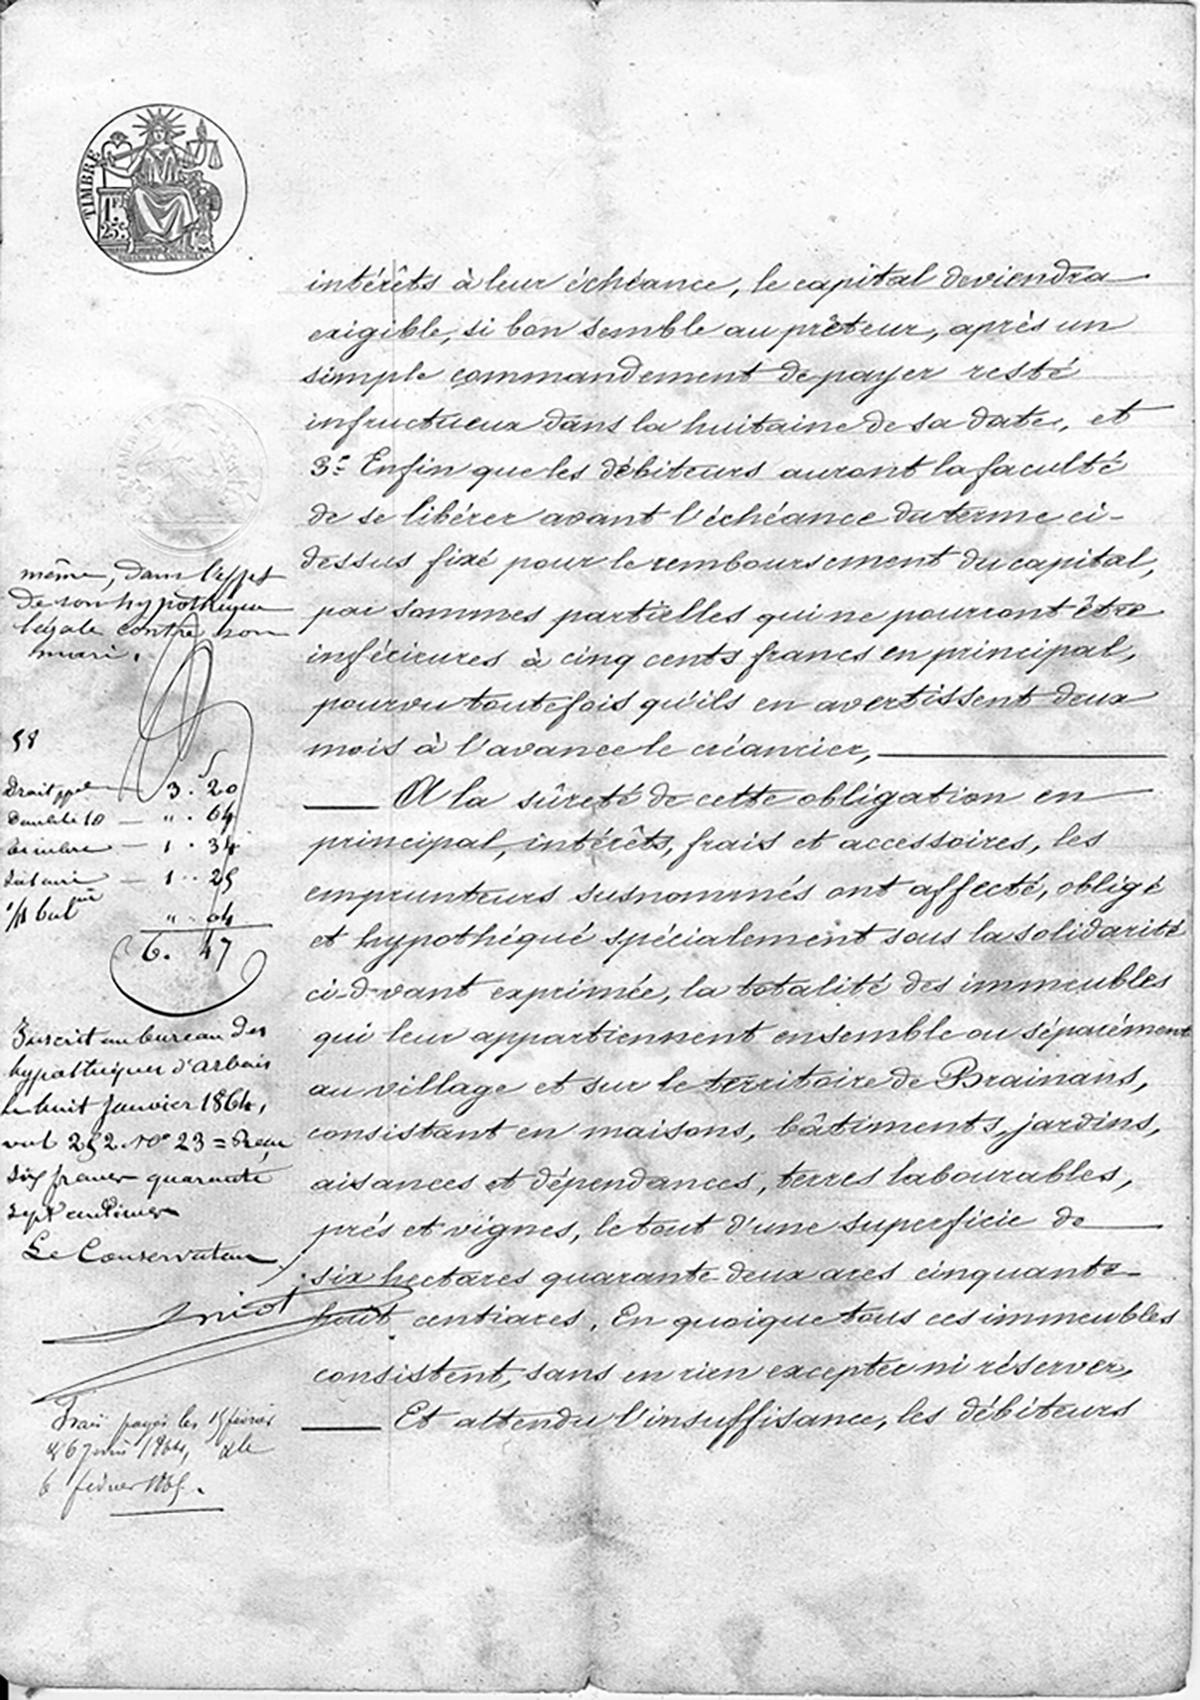 TIMBRE
1F.
25c.
intérêts à leur échéance, le capital deviendra
exigible, si bon semble au prêteur, après un
simple commandement de payer resté
infructueux dans la huitaine de sa date, et
3º Enfin que les débiteurs auront la faculté
de se libérer avant l'échéance du terme ci-
dessus fixé pour le remboursement du capital,
par sommes partielles qui ne pourront être
inférieures à cinq cents francs en principal,
pourvu toutefois qu'ils en avertissent deux
mois à l'avance le créancier,
A la sûreté de cette obligation en
principal, intérêts, frais et accessoires, les
emprunteurs susnommés ont affecté, obligé
et hypothéqué spécialement sous la solidarité
ci-devant exprimée, la totalité des immeubles
qui leur appartiennent ensemble ou séparément
au village et sur le territoire de Brainans,
consistant en maisons, bâtiments, jardins,
aisances et dépendances, terres labourables,
prés et vignes, le tout d'une superficie de
six hectares quarante deux ares cinquante-
huit centiares. En quoique tous ces immeubles
consistent, sans en rien excepter ni réserver,
Et attendu l'insuffisance, les débiteurs
même, dans l'effet
de son hypothèque
légale contre son
mari.
58
Droit ppal 3. 20
Double 10 ". 64
Timbre 1. 34
Salaire 1.. 25
". 04
6. 47
Inscrit au bureau des
hypothèques d'Arbois
le huit Janvier 1864,
vol 252 Nº 23 = Reçu
six francs quarante
sept centimes
Le Conservateur
Frais payés les 15 février
& 6 1864, & le
6 février 1865.